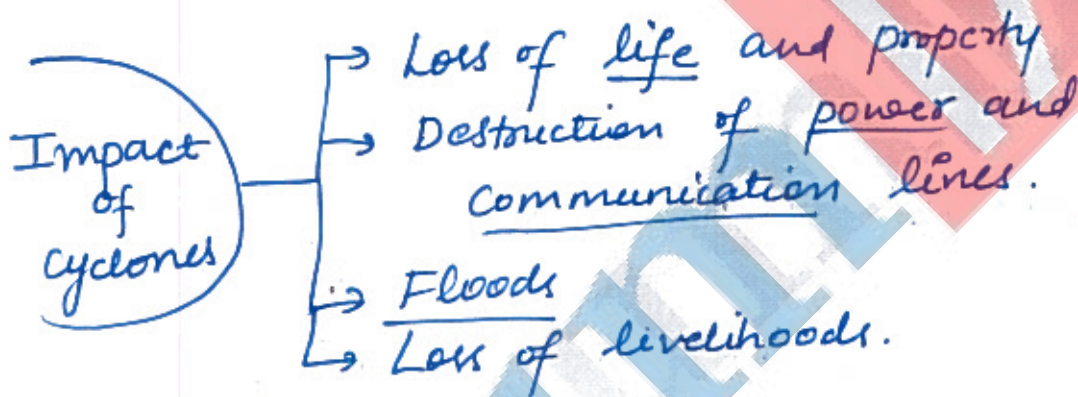 Impact
of
cyclones
→ Loss of life and property
→ Destruction of power and
communication lines.
→ Floods
→ Loss of livelihoods.